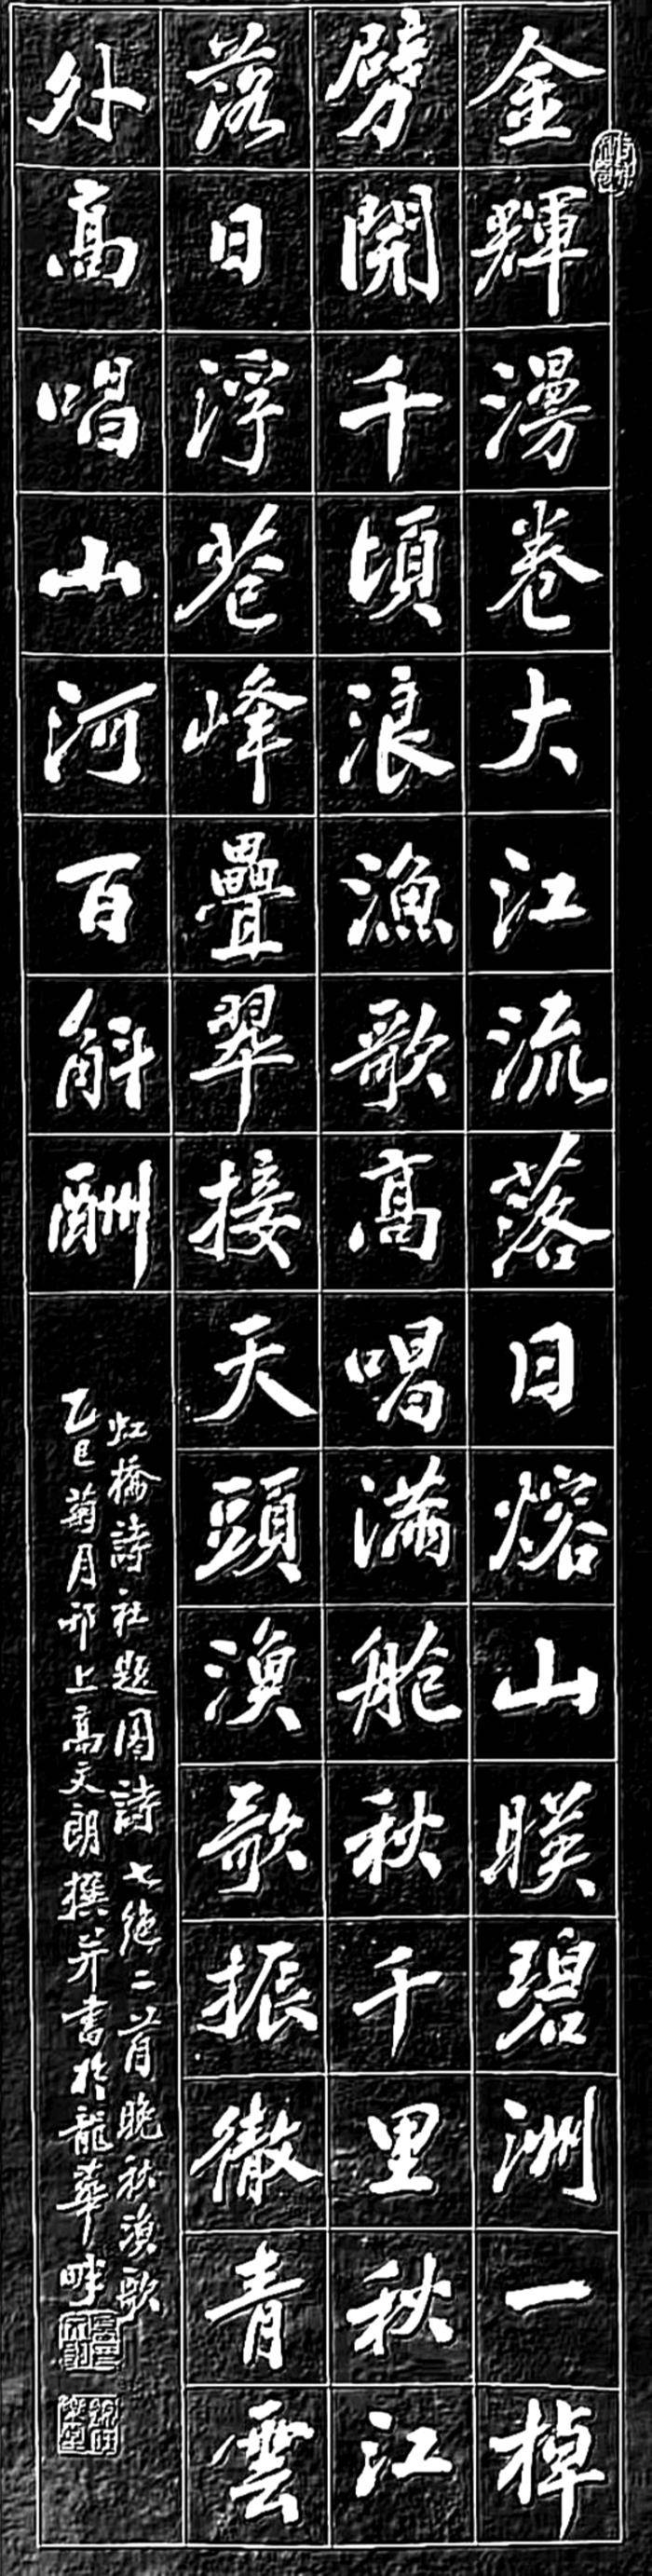 金輝漫卷大江流落日熔山暎碧洲一棹
劈開千頃浪漁歌高唱滿舱秋千里秋江
落日浮蒼峰疊翠接天頭漁歌振徹青雲
外高唱山河百斛酬
虹橋詩社題圖詩七絕二首晚秋漁歌
乙巳菊月邗上高文朗撰并書於龍華畔